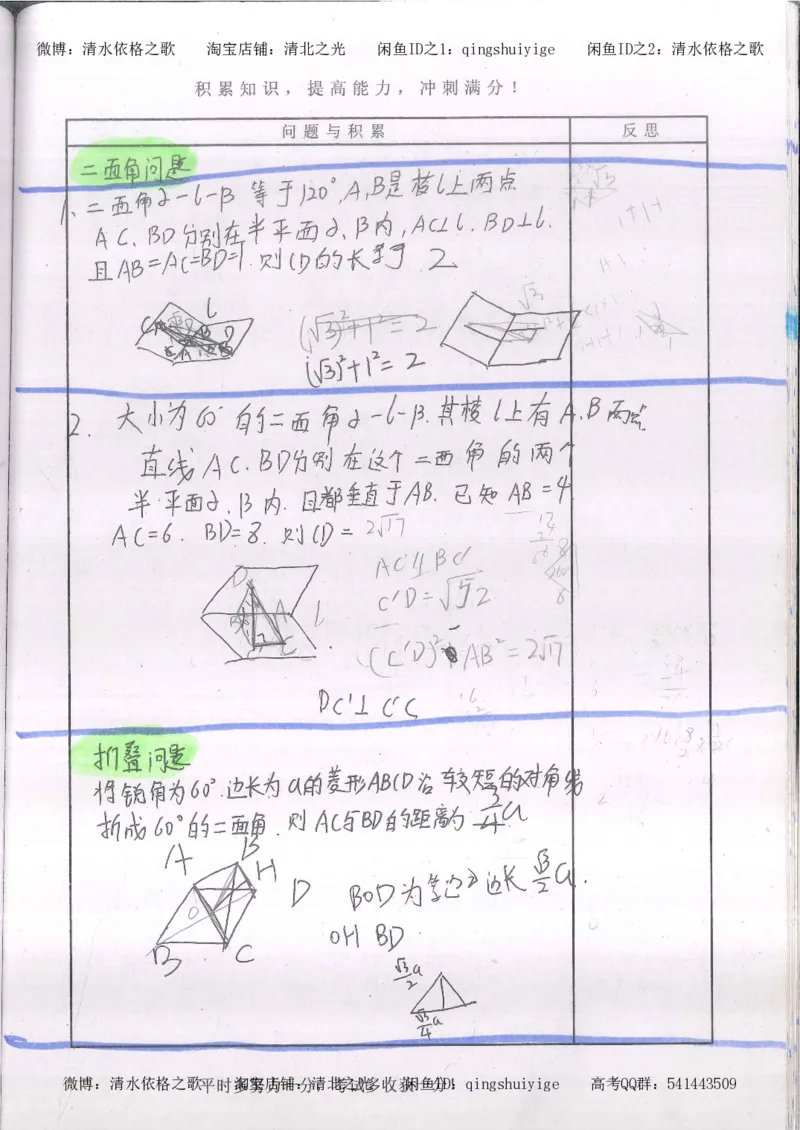 微博：清水依格之歌 淘宝店铺：清北之光 闲鱼ID之1：qingshuiyige 闲鱼ID之2：清水依格之歌
积累知识，提高能力，冲刺满分！
问题与积累 反思
二面角问题
1、二面角α-l-β 等于120°,A,B是棱l上两点
AC、BD分别在半平面α、β内,AC⊥l. BD⊥l.
且AB=AC=BD=1.则CD的长等于 2
(√3)²+1²=2
(√3)²+1²=2
2. 大小为60°的二面角α-l-β.其棱l上有A.B两点
直线AC.BD分别在这个二面角的两个
半平面α、β内.且都垂直于AB.已知AB=4
AC=6. BD=8.则CD= 2√17
C'D=√52
(C'D)² AB²=2√17
DC'⊥C'C
折叠问题
将锐角为60°.边长为a的菱形ABCD沿较短的对角线
折成60°的二面角.则AC与BD的距离为 3/4 a
A B H D
O
B C
BOD为等边 边长 √3/2 a.
OH BD
√3/2 a
√3/4 a
微博：清水依格之歌 闲鱼ID：qingshuiyige 高考QQ群：541443509